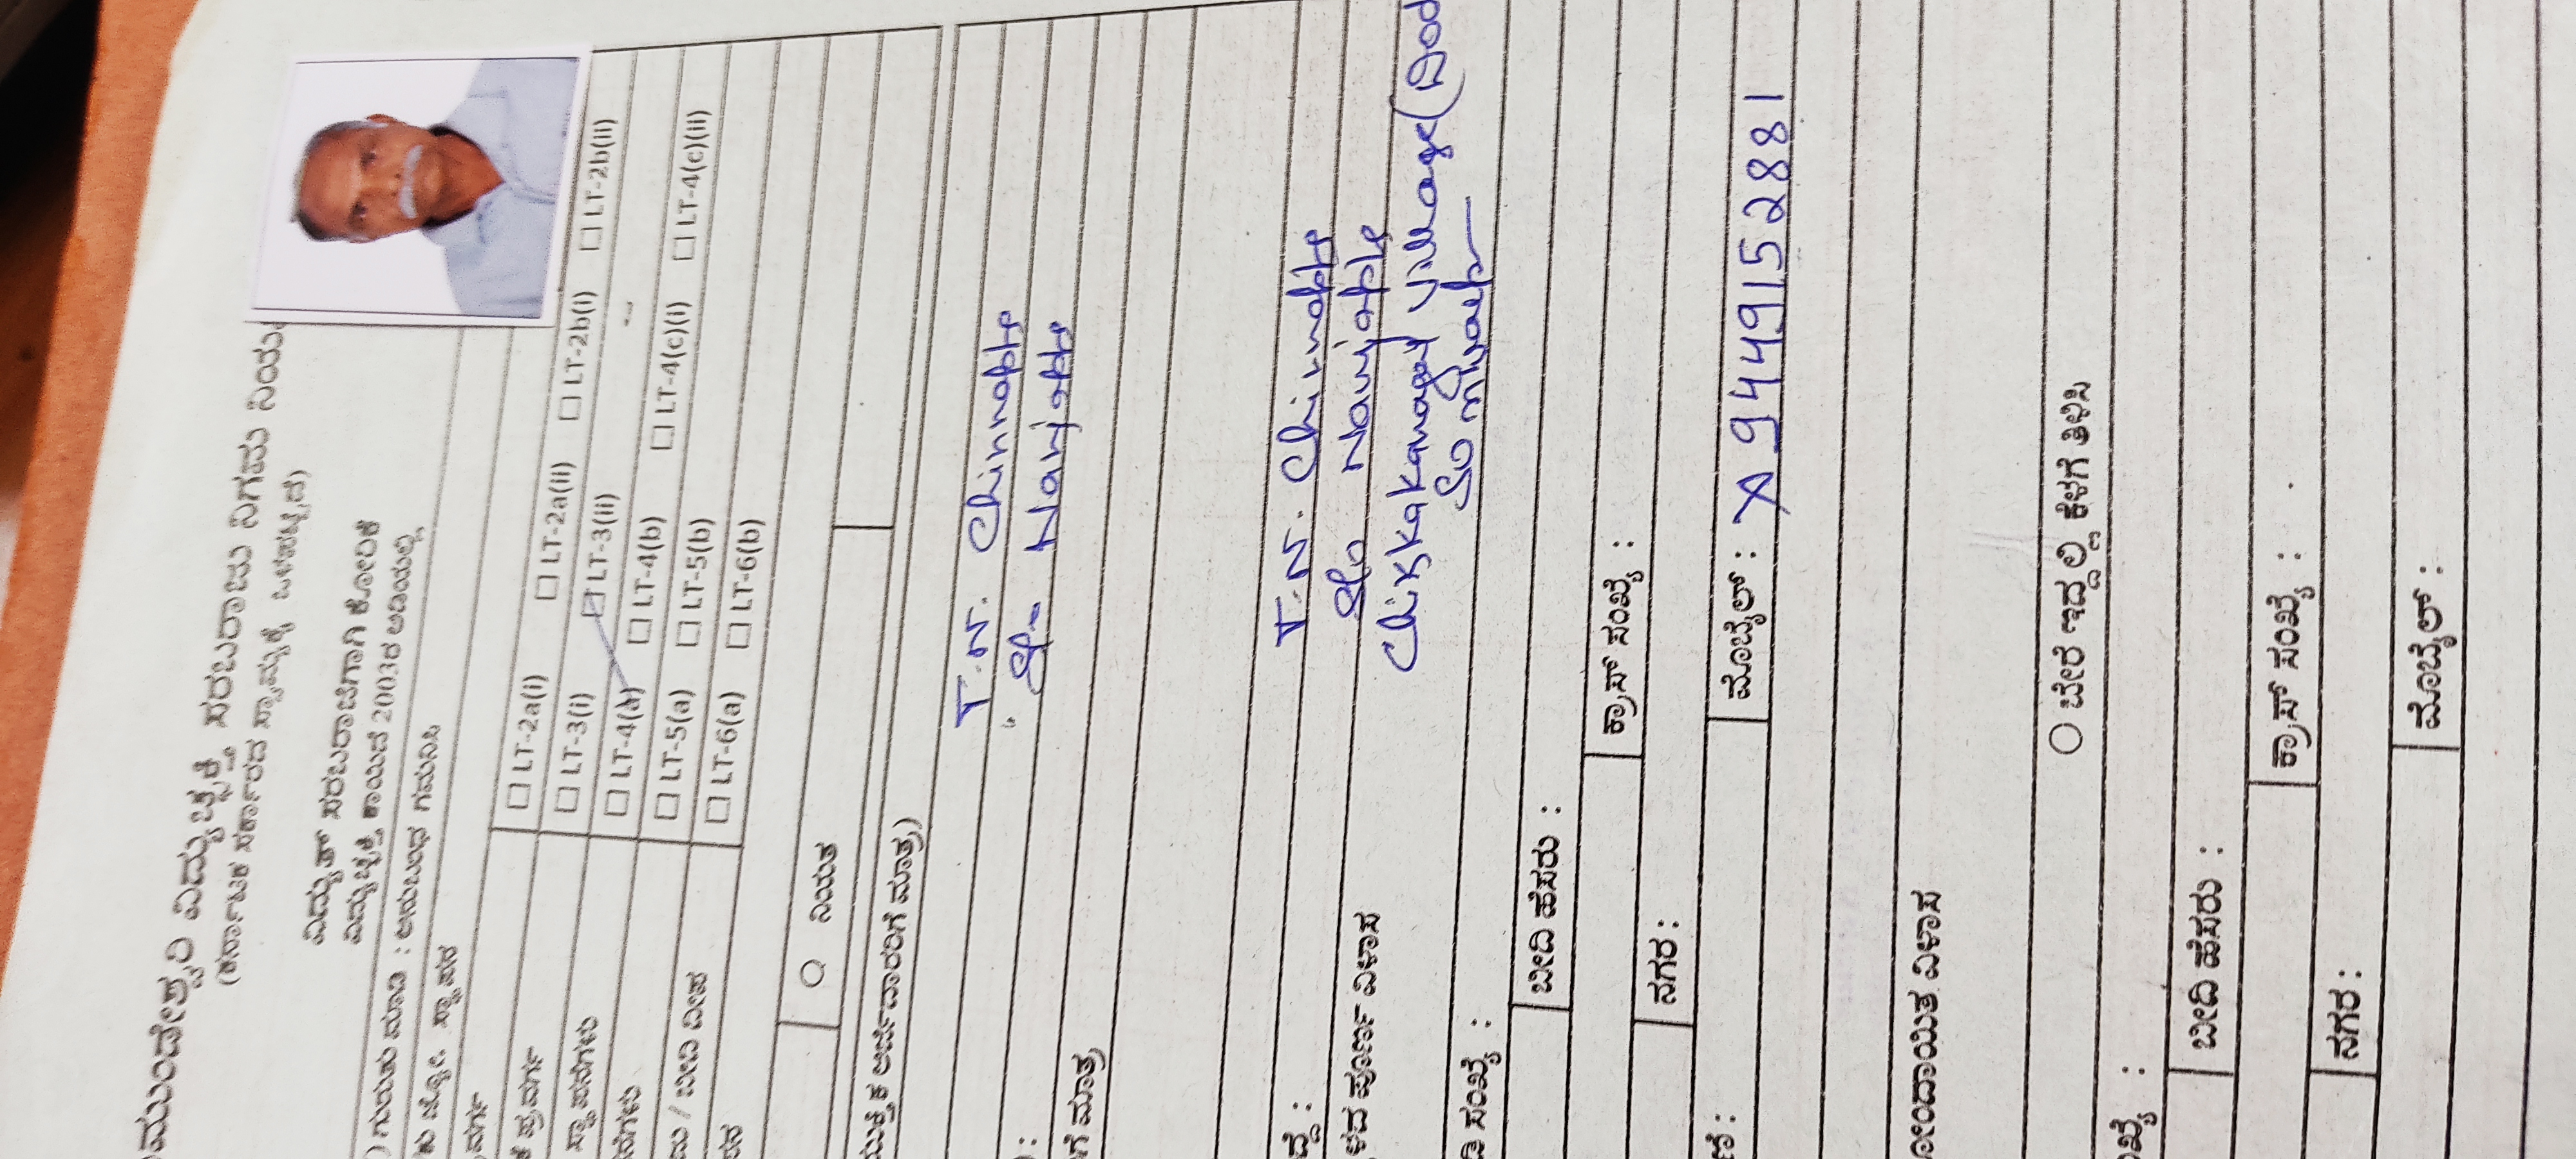 ಾಮುಂಡೇಶ್ವರಿ ವಿದ್ಯುಚ್ಛಕ್ತಿ ಸರಬರಾಜು ನಿಗಮ ನಿಯಮ
(ಕರ್ನಾಟಕ ಸರ್ಕಾರದ ಸ್ವಾಮ್ಯಕ್ಕೆ ಒಳಪಟ್ಟಿದೆ)
ವಿದ್ಯುತ್ ಸರಬರಾಜಿಗಾಗಿ ಕೋರಿಕೆ
ವಿದ್ಯುಚ್ಛಕ್ತಿ ಕಾಯಿದೆ 2003ರ ಅಡಿಯಲ್ಲಿ
) ಗುರುತು ಮಾಡಿ : ಅನುಬಂಧ ಗಮನಿಸಿ
ಸ್ಥಾಪನ
☐ LT-2a(i) ☐ LT-2a(ii) ☐ LT-2b(i) ☐ LT-2b(ii)
☐ LT-3(i) ☑ LT-3(ii)
☐ LT-4(a) ☐ LT-4(b) ☐ LT-4(c)(i) ☐ LT-4(c)(ii)
/ ಬೀದಿ ದೀಪ ☐ LT-5(a) ☐ LT-5(b)
☐ LT-6(a) ☐ LT-6(b)
○ ನಿಯಮಿತ
ಅರ್ಜಿದಾರರಿಗೆ ಮಾತ್ರ)
T.N. Chinnappa
S/o Nanjappa
ಗೆ ಮಾತ್ರ
T.N. Chinnappa
S/o Nanjappa
ಳದ ಪೂರ್ಣ ವಿಳಾಸ
Chikkakanagal Village (Dod
ಡಿ ಸಂಖ್ಯೆ :
ಬೀದಿ ಹೆಸರು :
ಕ್ರಾಸ್ ಸಂಖ್ಯೆ :
ನಗರ :
ಮೊಬೈಲ್ : X 9449152881
ೋಂದಾಯಿತ ವಿಳಾಸ
○ ಬೇರೆ ಇದ್ದಲ್ಲಿ ಕೆಳಗೆ ತಿಳಿಸಿ
ಖ್ಯೆ :
ಬೀದಿ ಹೆಸರು :
ಕ್ರಾಸ್ ಸಂಖ್ಯೆ :
ನಗರ :
ಮೊಬೈಲ್ :